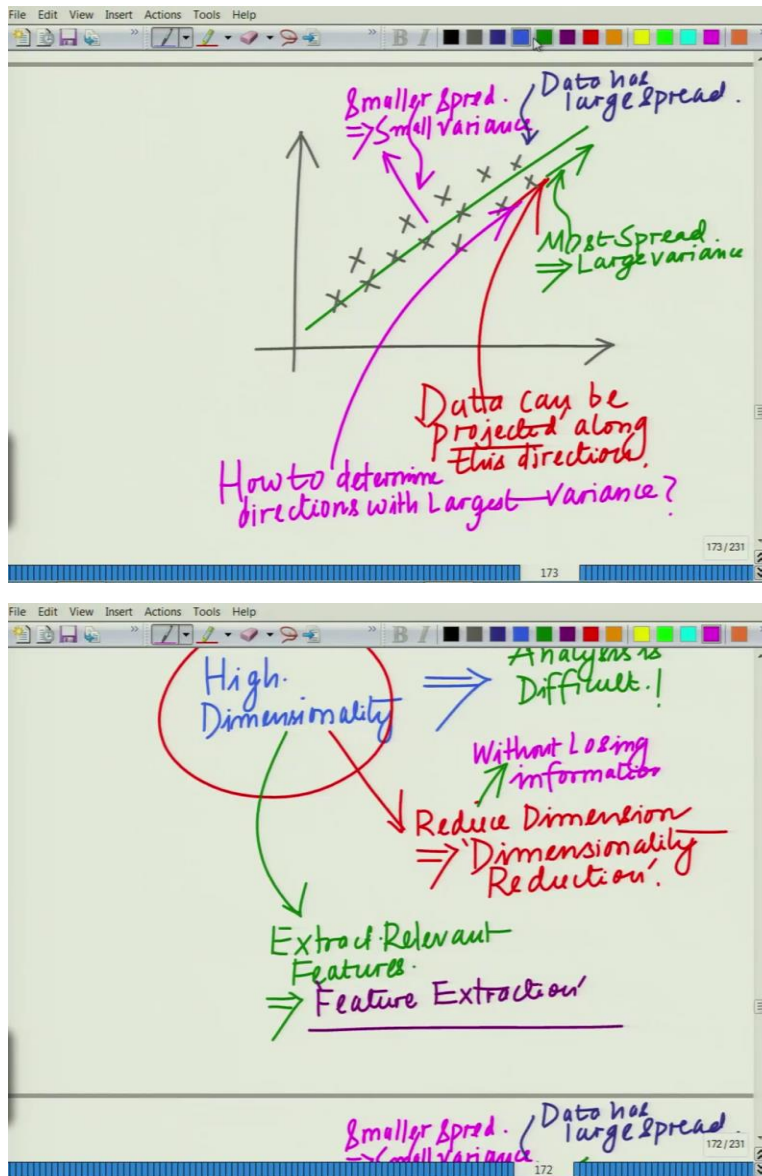 File Edit View Insert Actions Tools Help
B I
Smaller Spred.
⇒ Small variance
Data has
large spread.
Most Spread.
⇒ Large variance
Data can be
projected along
this direction.
How to determine
directions with Largest Variance?
173/231
173
File Edit View Insert Actions Tools Help
B I
High
Dimensionality
⇒ Analysis is
Difficult!
Without Losing
information
Reduce Dimension
⇒ 'Dimensionality
Reduction'.
Extract Relevant
Features.
⇒ Feature Extraction'
Smaller Spred.
⇒ Small variance
Data has
large spread.
172/231
172